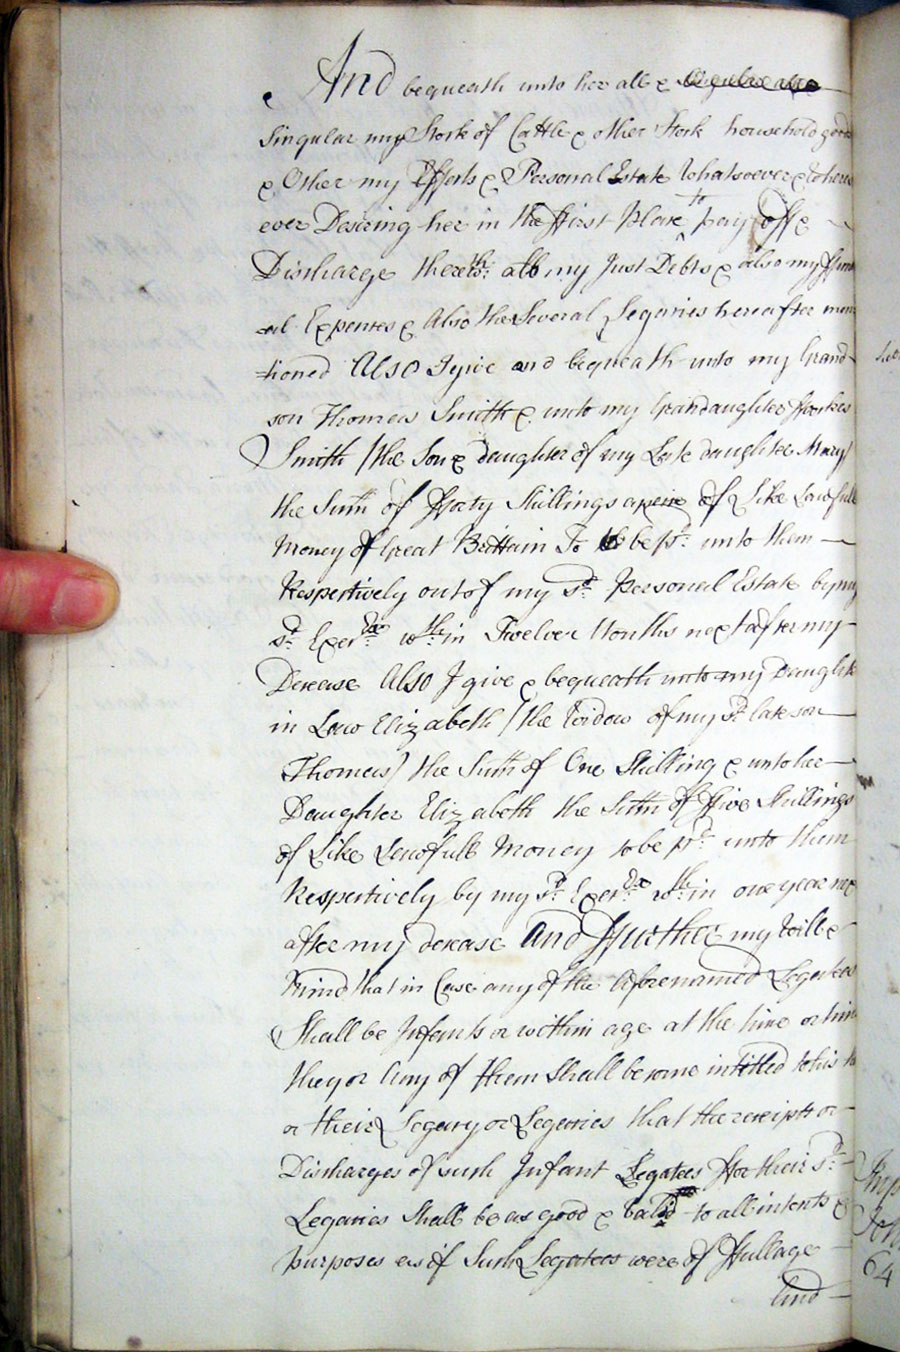 And bequeath unto her all &
Singular my Stock of Cattle & other Stock household good
& Other my Effects & Personal Estate Whatsoever & where
ever Desiring her in the ffirst Place to pay off &
Discharge therewth: all my Just Debts & also my ffuner
al Expences & Also the Several Legacies hereafter men
tioned Also I give and bequeath unto my Grand
son Thomas Smith & unto my Grandaughter
Smith /the Son & daughter of my Late daughter Mary/
the Sum of fforty Shillings apeice of Like Lawfull
Money of Great Brittain To be pd: unto them
Respectively out of my sd: Personal Estate by my
sd: Execrx: wth:in Twelve Months next after my
Decease Also I give & bequeath unto my Daughter
in Law Elizabeth /the Widow of my sd: late son
Thomas/ the Sum of One Shilling & unto her
Daughter Elizabeth the Sum of ffive Shillings
of Like Lawfull Money to be pd: unto them
Respectively by my sd: Execrx: wth:in one year nex
after my decease And ffurther my Will &
Mind that in Case any of the Aforenamed Legatees
Shall be Infants or within age at the time or times
they or Any of them Shall become intitled to his
or their Legacy or Legacies that the receipts or
Discharges of such Infant Legatees ffor their sd:
Legacies Shall be as good & Valid to all intents &
purposes as if Such Legatees were of ffull age
And
64